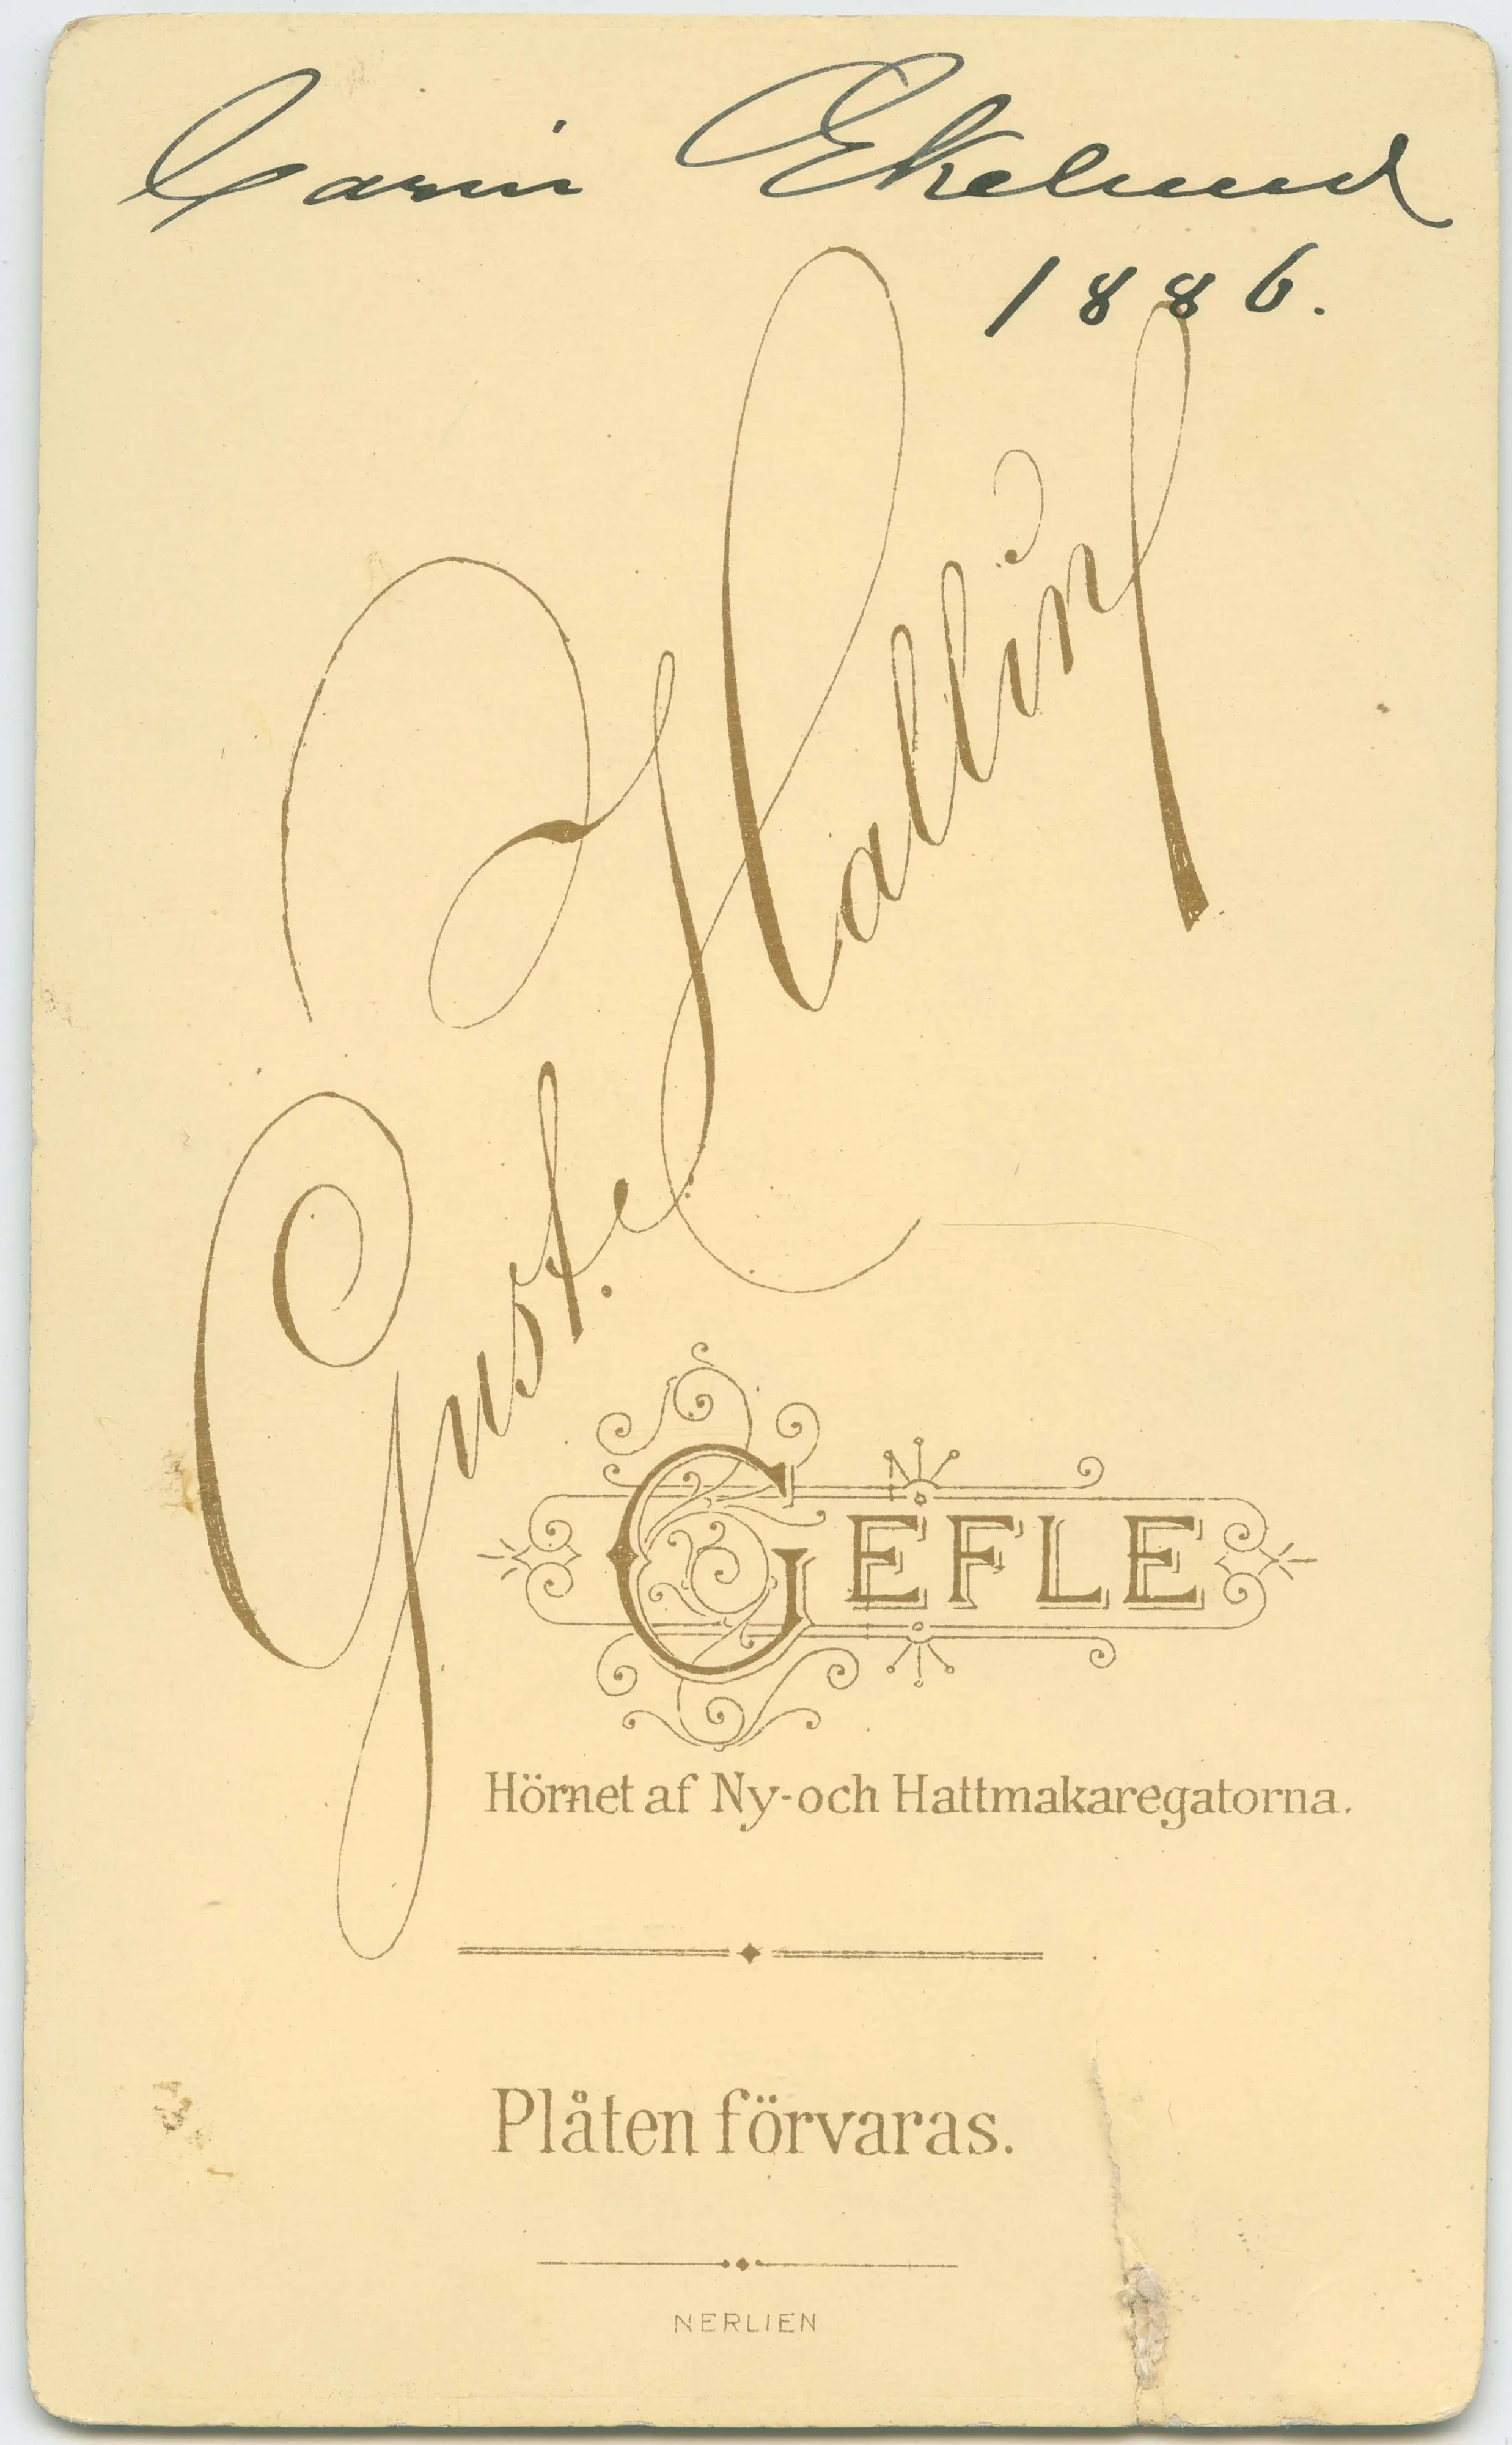 Carin Ekelund
1886.
Gust. Hallin
GEFLE
Hörnet af Ny-och Hattmakaregatorna.
Plåten förvaras.
NERLIEN